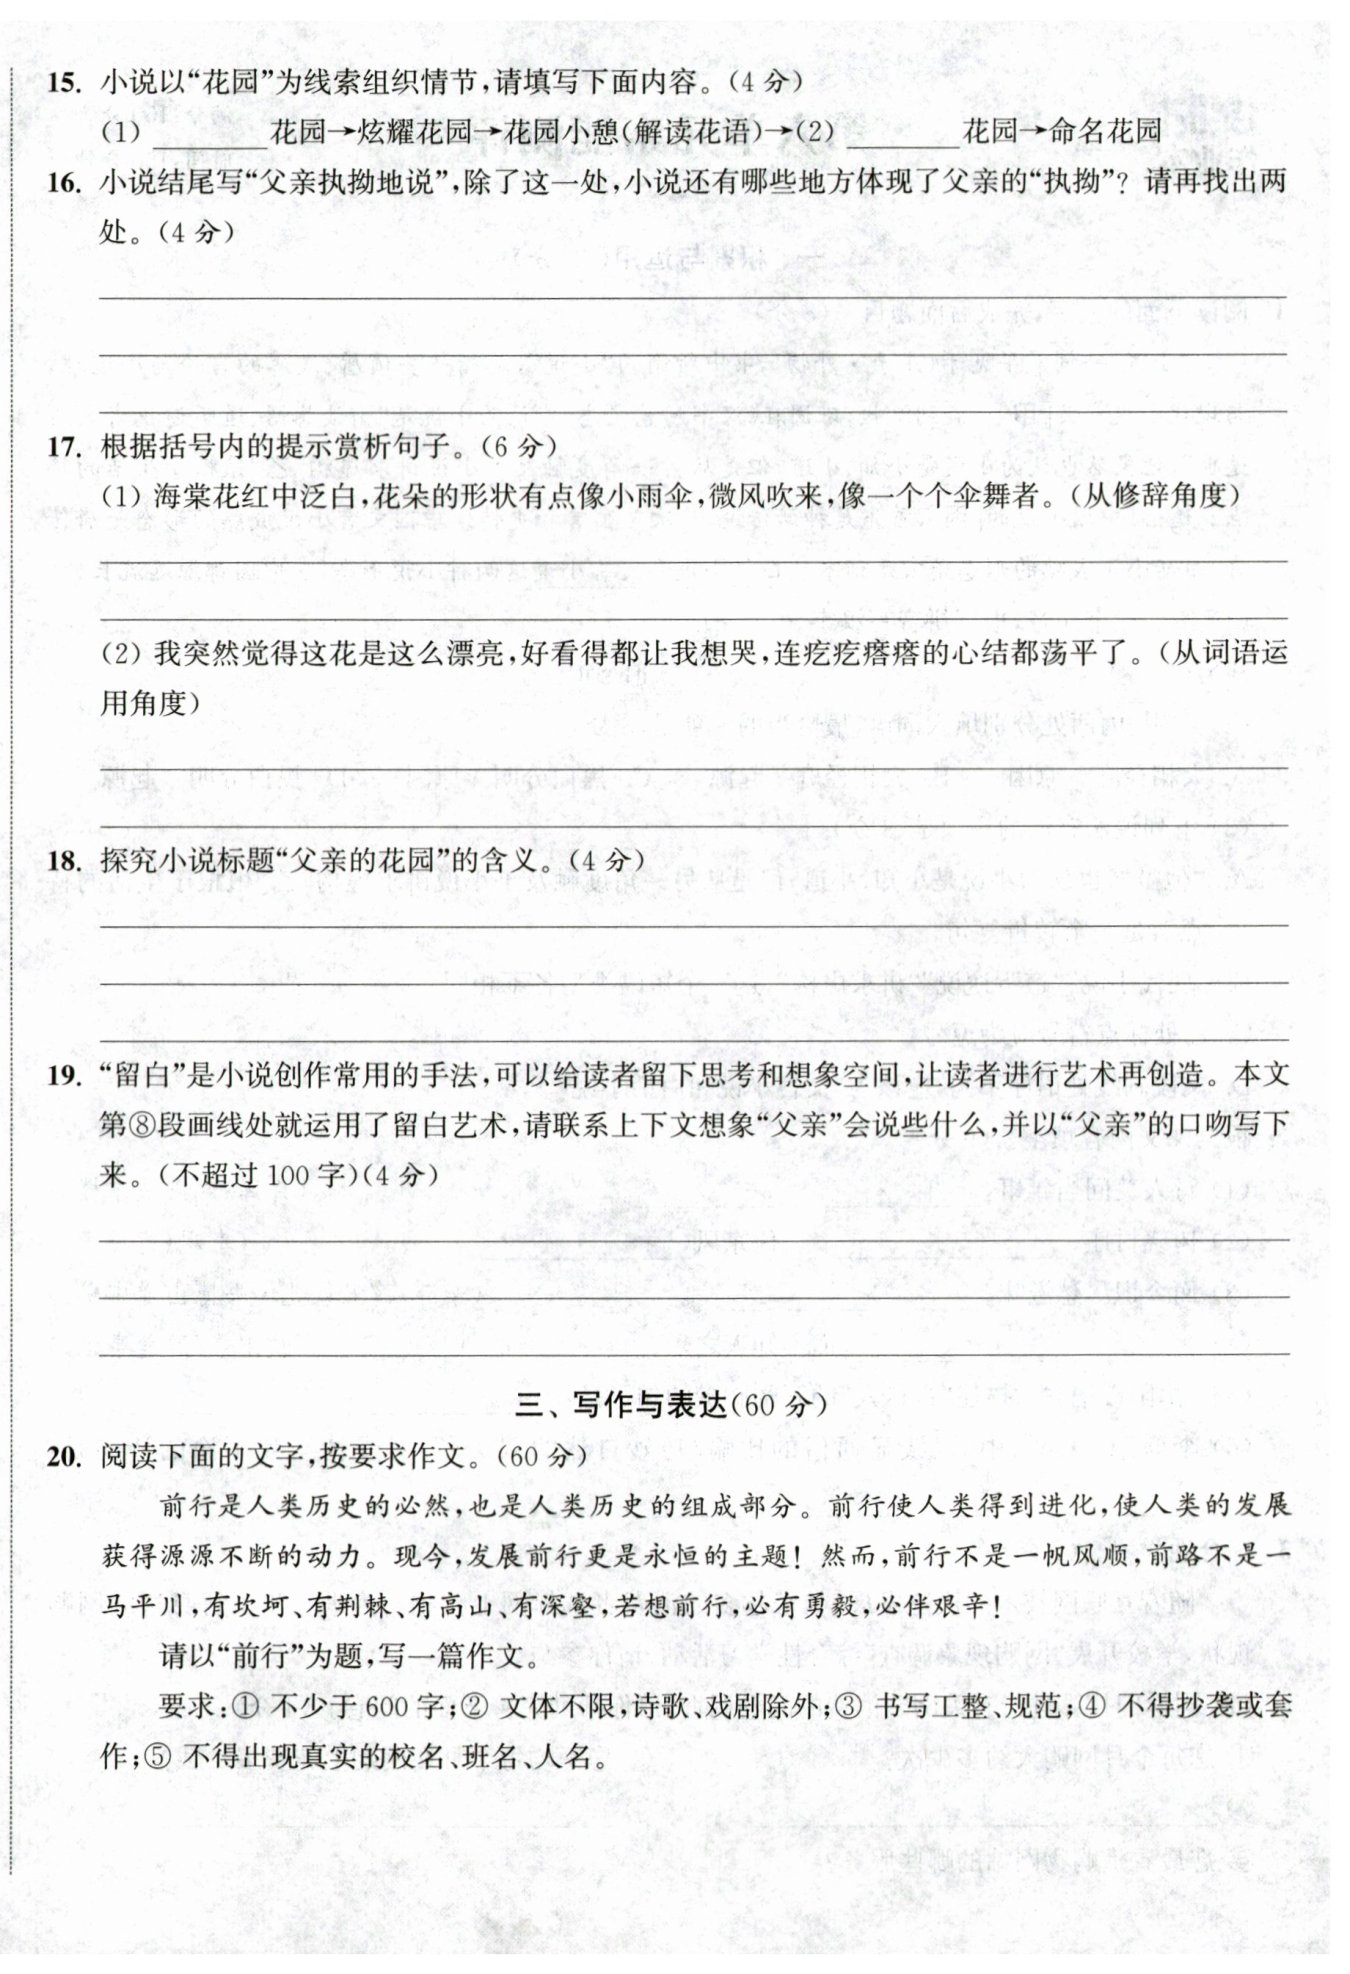 15. 小说以“花园”为线索组织情节,请填写下面内容。(4 分)
(1) ________花园→炫耀花园→花园小憩(解读花语)→(2) ________花园→命名花园
16. 小说结尾写“父亲执拗地说”,除了这一处,小说还有哪些地方体现了父亲的“执拗”? 请再找出两
处。(4 分)
17. 根据括号内的提示赏析句子。(6 分)
(1) 海棠花红中泛白,花朵的形状有点像小雨伞,微风吹来,像一个个伞舞者。(从修辞角度)
(2) 我突然觉得这花是这么漂亮,好看得都让我想哭,连疙疙瘩瘩的心结都荡平了。(从词语运
用角度)
18. 探究小说标题“父亲的花园”的含义。(4 分)
19. “留白”是小说创作常用的手法,可以给读者留下思考和想象空间,让读者进行艺术再创造。本文
第⑧段画线处就运用了留白艺术,请联系上下文想象“父亲”会说些什么,并以“父亲”的口吻写下
来。(不超过 100 字)(4 分)
三、写作与表达(60 分)
20. 阅读下面的文字,按要求作文。(60 分)
前行是人类历史的必然,也是人类历史的组成部分。前行使人类得到进化,使人类的发展
获得源源不断的动力。现今,发展前行更是永恒的主题! 然而,前行不是一帆风顺,前路不是一
马平川,有坎坷、有荆棘、有高山、有深壑,若想前行,必有勇毅,必伴艰辛!
请以“前行”为题,写一篇作文。
要求:① 不少于 600 字;② 文体不限,诗歌、戏剧除外;③ 书写工整、规范;④ 不得抄袭或套
作;⑤ 不得出现真实的校名、班名、人名。